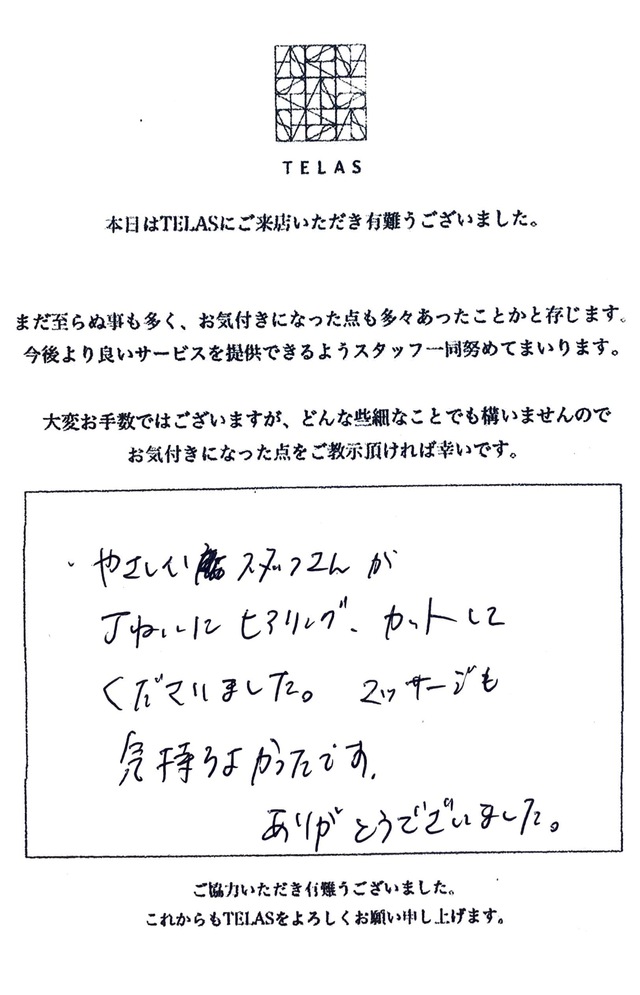 TELAS
本日はTELASにご来店いただき有難うございました。
まだ至らぬ事も多く、お気付きになった点も多々あったことかと存じます。
今後より良いサービスを提供できるようスタッフ一同努めてまいります。
大変お手数ではございますが、どんな些細なことでも構いませんので
お気付きになった点をご教示頂ければ幸いです。
・やさしい スタッフさんが
丁ねいにヒアリング、カットして
くださいました。マッサージも
気持ちよかったです。
ありがとうございました。
ご協力いただき有難うございました。
これからもTELASをよろしくお願い申し上げます。